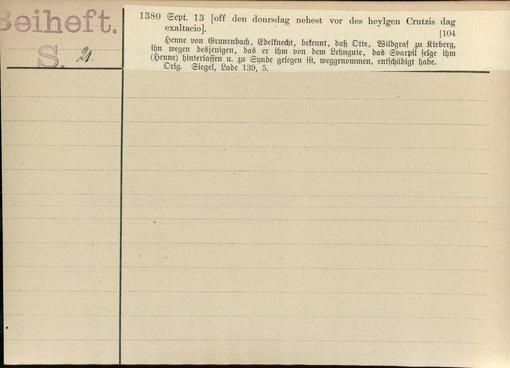 Beiheft.
S. 21.
1380 Sept. 13 [off den donrsdag nehest vor des heylgen Crutzis dag
exaltacio].
[104
Henne von Grunenbach, Edelknecht, bekennt, daß Otte, Wildgraf zu Kirberg,
ihn wegen desjenigen, das er ihm von dem Lehngute, das Svarpil selge ihm
(Henne) hinterlassen u. zu Synde gelegen ist, weggenommen, entschädigt habe.
Orig. Siegel, Lade 139, 5.